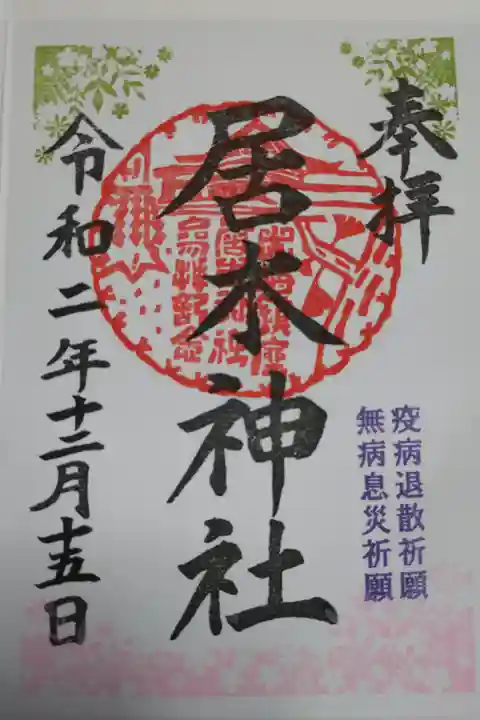 奉拝
疫病退散祈願
無病息災祈願
居木神社
令和二年十二月十五日